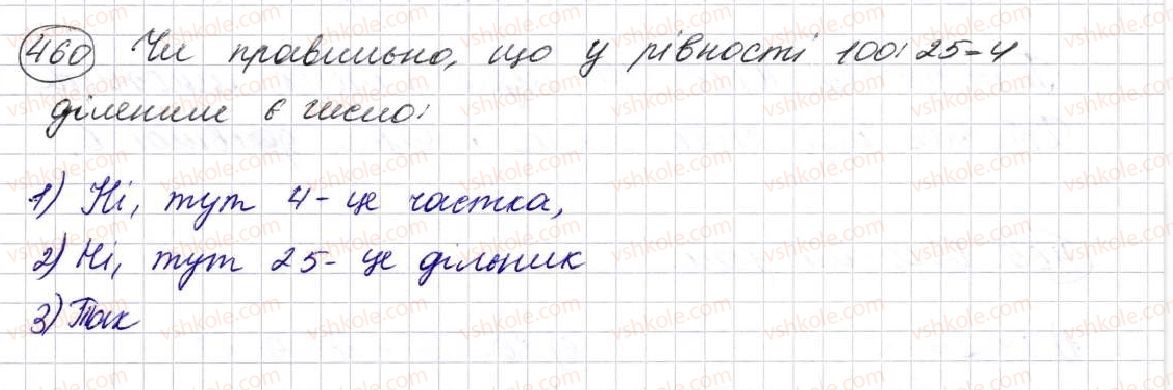 460 Чи правильно, що у рівності 100:25=4
діленим є число:
1) Ні, тут 4 - це частка,
2) Ні, тут 25 - це дільник
3) Так